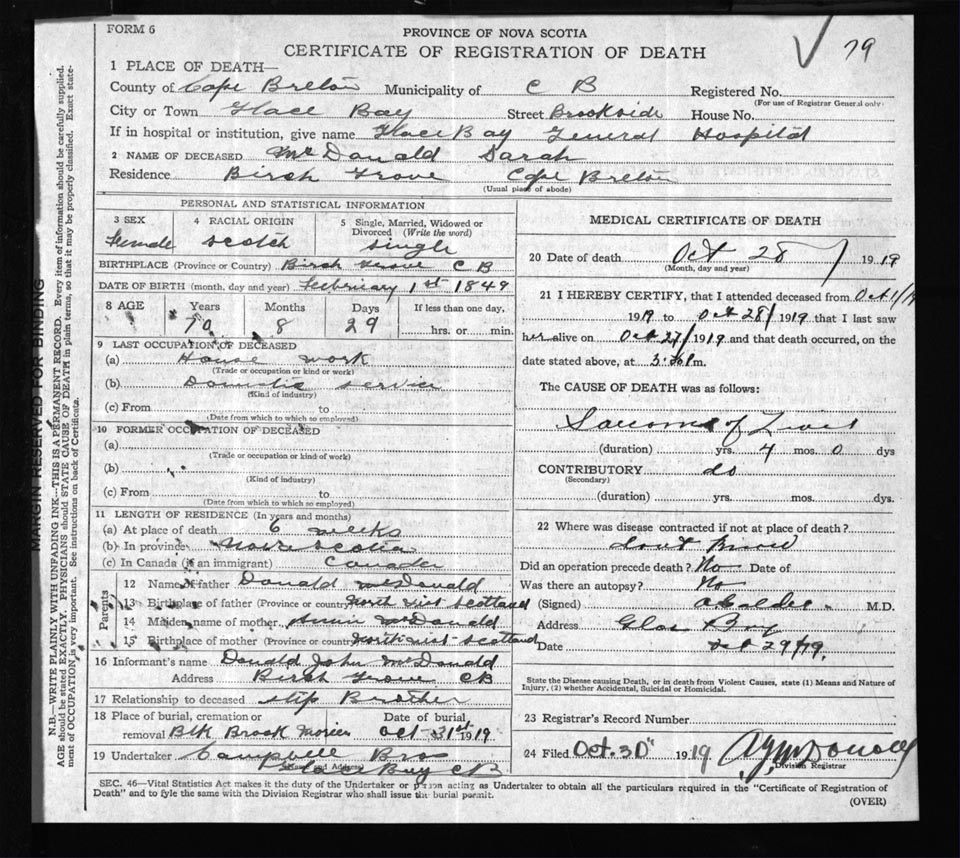 FORM 6
79
PROVINCE OF NOVA SCOTIA
CERTIFICATE OF REGISTRATION OF DEATH
1 PLACE OF DEATH—
County of Cape Breton Municipality of C B Registered No.
(For use of Registrar General only)
City or Town Glace Bay Street Brookside House No.
If in hospital or institution, give name Glace Bay General Hospital
2 NAME OF DECEASED McDonald Sarah
Residence Birch Grove Cape Breton
(Usual place of abode)
PERSONAL AND STATISTICAL INFORMATION
3 SEX Female
4 RACIAL ORIGIN Scotch
5 Single, Married, Widowed or Divorced (Write the word) Single
BIRTHPLACE (Province or Country) Birch Grove C B
DATE OF BIRTH (month, day and year) February 1st 1849
8 AGE Years Months Days If less than one day,
70 8 29 hrs. or min.
9 LAST OCCUPATION OF DECEASED
(a) House work
(Trade or occupation or kind of work)
(b) Domestic service
(Kind of industry)
(c) From to
(Date from which to which employed)
10 FORMER OCCUPATION OF DECEASED
(a)
(Trade or occupation or kind of work)
(b)
(Kind of industry)
(c) From to
(Date from which to which employed)
11 LENGTH OF RESIDENCE (In years and months)
(a) At place of death 6 weeks
(b) In province Nova Scotia
(c) In Canada (if an immigrant) Canada
Parents
12 Name of father Donald McDonald
13 Birthplace of father (Province or country) North Uist Scotland
14 Maiden name of mother Annie McDonald
15 Birthplace of mother (Province or country) North Uist Scotland
16 Informant's name Donald John McDonald
Address Birch Grove CB
17 Relationship to deceased Step Brother
18 Place of burial, cremation or removal Blk Brook Morien
Date of burial Oct 31st 1919
19 Undertaker Campbell Bros
(Name and Address)
Glace Bay CB
MEDICAL CERTIFICATE OF DEATH
20 Date of death Oct 28 1919
(Month, day and year)
21 I HEREBY CERTIFY, that I attended deceased from Oct 1/19
1919 to Oct 28/1919 that I last saw
her alive on Oct 27/1919 and that death occurred, on the
date stated above, at m.
The CAUSE OF DEATH was as follows:
Sarcoma of Liver
(duration) yrs. 4 mos. 0 dys
CONTRIBUTORY do
(Secondary)
(duration) yrs. mos. dys.
22 Where was disease contracted if not at place of death?
dont
Did an operation precede death? No Date of
Was there an autopsy? No
(Signed) M.D.
Address Glace Bay
Date Oct 29/19.
State the Disease causing Death, or in death from Violent Causes, state (1) Means and Nature of Injury, (2) whether Accidental, Suicidal or Homicidal.
23 Registrar's Record Number
24 Filed Oct. 30" 1919
Division Registrar
SEC. 46—Vital Statistics Act makes it the duty of the Undertaker or person acting as Undertaker to obtain all the particulars required in the "Certificate of Registration of
Death" and to file the same with the Division Registrar who shall issue the burial permit.
(OVER)
MARGIN RESERVED FOR BINDING
N.B.—WRITE PLAINLY WITH UNFADING INK—THIS IS A PERMANENT RECORD. Every item of information should be carefully supplied.
AGE should be stated EXACTLY. PHYSICIANS should STATE CAUSE OF DEATH in plain terms, so that it may be properly classified. Exact statement
of OCCUPATION is very important. See instructions on back of Certificate.